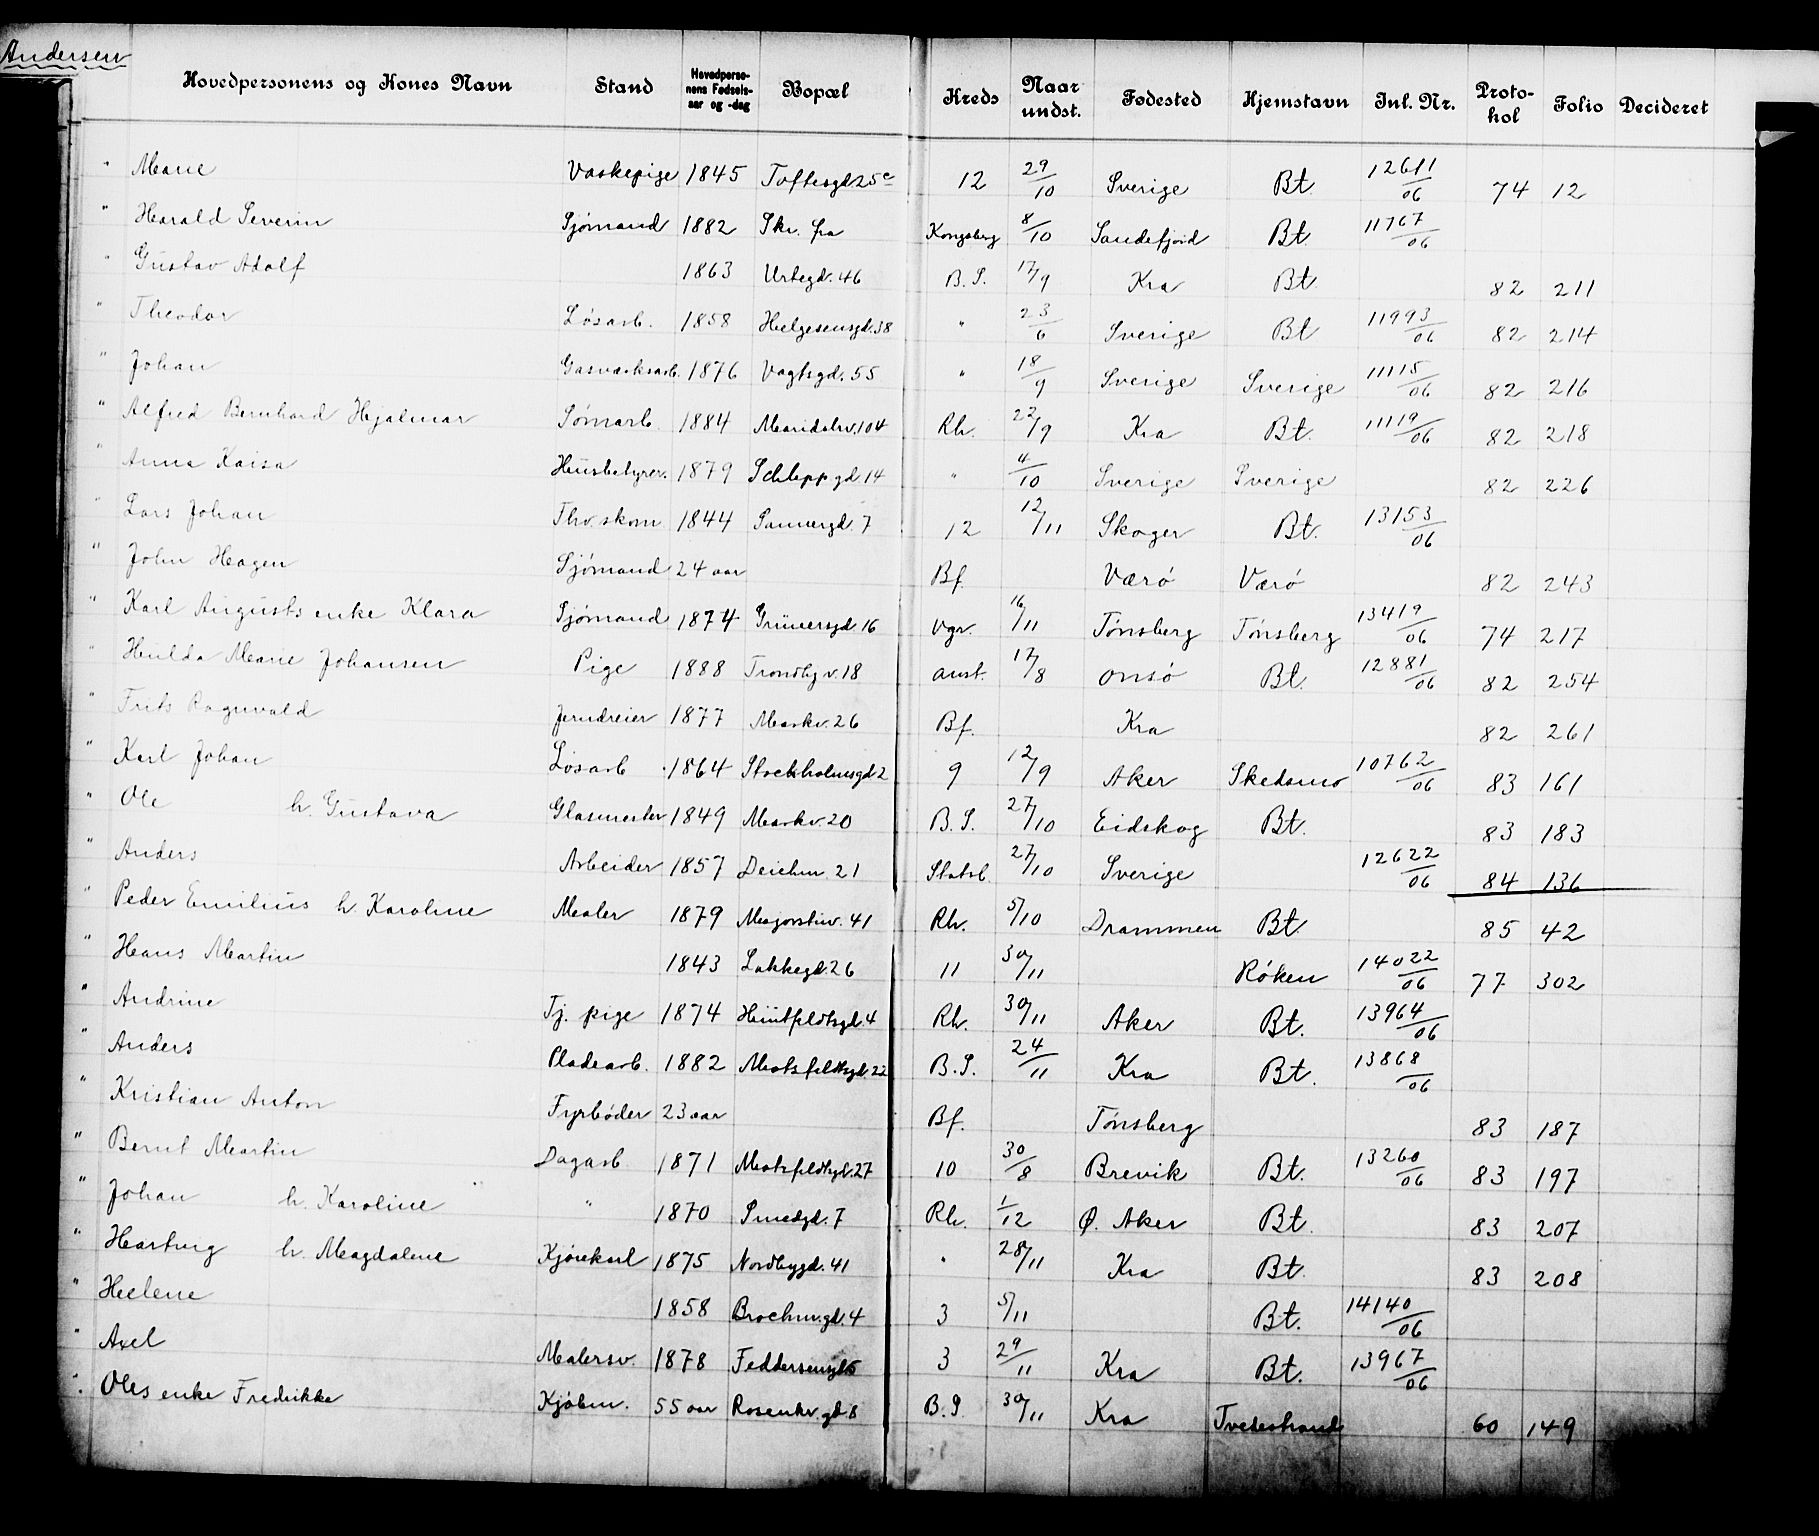 Andersen
Hovedpersonens og Kones Navn Stand Hovedpersonens Fødselsaar og -dag Bopæl Kreds Naar undst. Fødested Hjemstavn Inl. Nr. Protokol Folio Decideret
" Marie Vaskepige 1845 Toftesgd 25c 12 29/10 Sverige Bt. 12611/06 74 12
" Harald Severin Sjømand 1882 Skr. fra Kongsberg 8/10 Sandefjord Bt 11767/06
" Gustav Adolf 1863 Urtegd. 46 B.S. 17/9 Kra Bt. 82 211
" Theodor Løsarb. 1858 Helgesensgd. 38 " 23/6 Sverige Bt 11993/06 82 214
" Johan Gasværksarb. 1876 Vogtsgd. 55 " 18/9 Sverige Sverige 11115/06 82 216
" Alfred Bernhard Hjalmar Tømarb. 1884 Maridalsv. 104 Rh. 22/9 Kra Bt. 11119/06 82 218
" Anna Kaisa Husbestyrer. 1879 Schleppgd 14 " 4/10 Sverige Sverige 82 226
" Lars Johan Thv. skom 1844 Sannergd. 7 12 12/11 Skoger Bt. 13153/06
" John Hagen Sjømand 24 aar Bf. Værø Værø 82 243
" Karl Augusts enke Klara Sjømand 1874 Grünersgd 16 Vgr. 16/11 Tønsberg Tønsberg 13419/06 74 217
" Hulda Marie Johansen Pige 1888 Trondhj v. 18 anst. 17/8 Onsø Bt. 12881/06 82 254
" Frits Ragnvald Jerndreier 1877 Markv. 26 Bf. Kra 82 261
" Karl Johan Løsarb 1864 Stockholmsgd 2 9 12/9 Aker Skedsmo 10762/06 83 161
" Ole h. Gustava Glasmester 1849 Markv. 20 B.S. 27/10 Eidskog Bt. 83 183
" Anders Arbeider 1857 Deichm. 21 Statsb. 27/10 Sverige 12622/06 84 136
" Peder Emilius h. Karoline Maler 1879 Majorstuv. 41 Rh. 5/10 Drammen Bt. 85 42
" Hans Martin 1843 Lakkegd. 26 11 30/11 Røken 14022/06 77 302
" Andrine Tj. pige 1874 Huitfeldtsgd. 4 Rh. 30/11 Aker Bt. 13964/06
" Anders Pladearb. 1882 Motzfeldtsgd. 22 B.S. 24/11 Kra Bt. 13868/06
" Kristian Anton Fyrbøder 23 aar Bf. Tønsberg 83 187
" Bernt Martin Dagarb 1871 Motzfeldtsgd. 27 10 30/8 Brevik Bt. 13260/06 83 197
" Johan h. Karoline " 1870 Smedgd. 7 Rh. 1/12 Ø. Aker Bt. 83 207
" Hartvig h. Magdalene Kjørekarl 1875 Nordbygd. 41 " 28/11 Kra Bt. 83 208
" Helene 1858 Brochm.gd. 4 3 5/11 Bt. 14140/06
" Axel Malersv. 1878 Feddersensgd 5 3 29/11 Kra Bt. 13967/06
" Oles enke Fredrikke Kjøbm. 55 aar Rosenkr.gd. 8 B.S. 30/11 Kra Tvedestrand 60 149